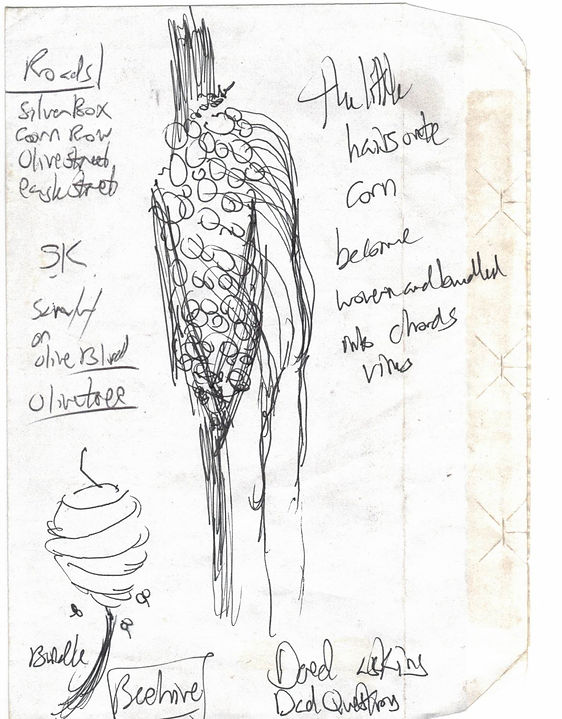 Roads
Silver Box
Corn Row
Olive street
eagle street
SK
on
olive Blvd
Olive tree
the little
hairs on te
corn
become
woven and bundled
into chords
vines
Bundle
Beehive
asking
Dad Questions